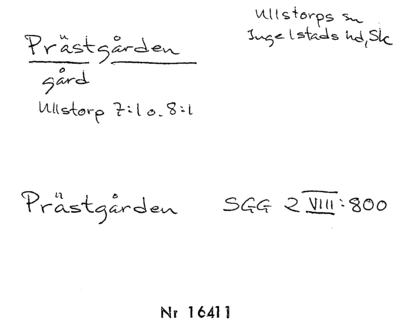 Prästgården
Ullstorps sn
Ingelstads hd, Sk
gård
Ullstorp 7:1 o. 8:1
Prästgården SGG 2 VIII:800
Nr 16411